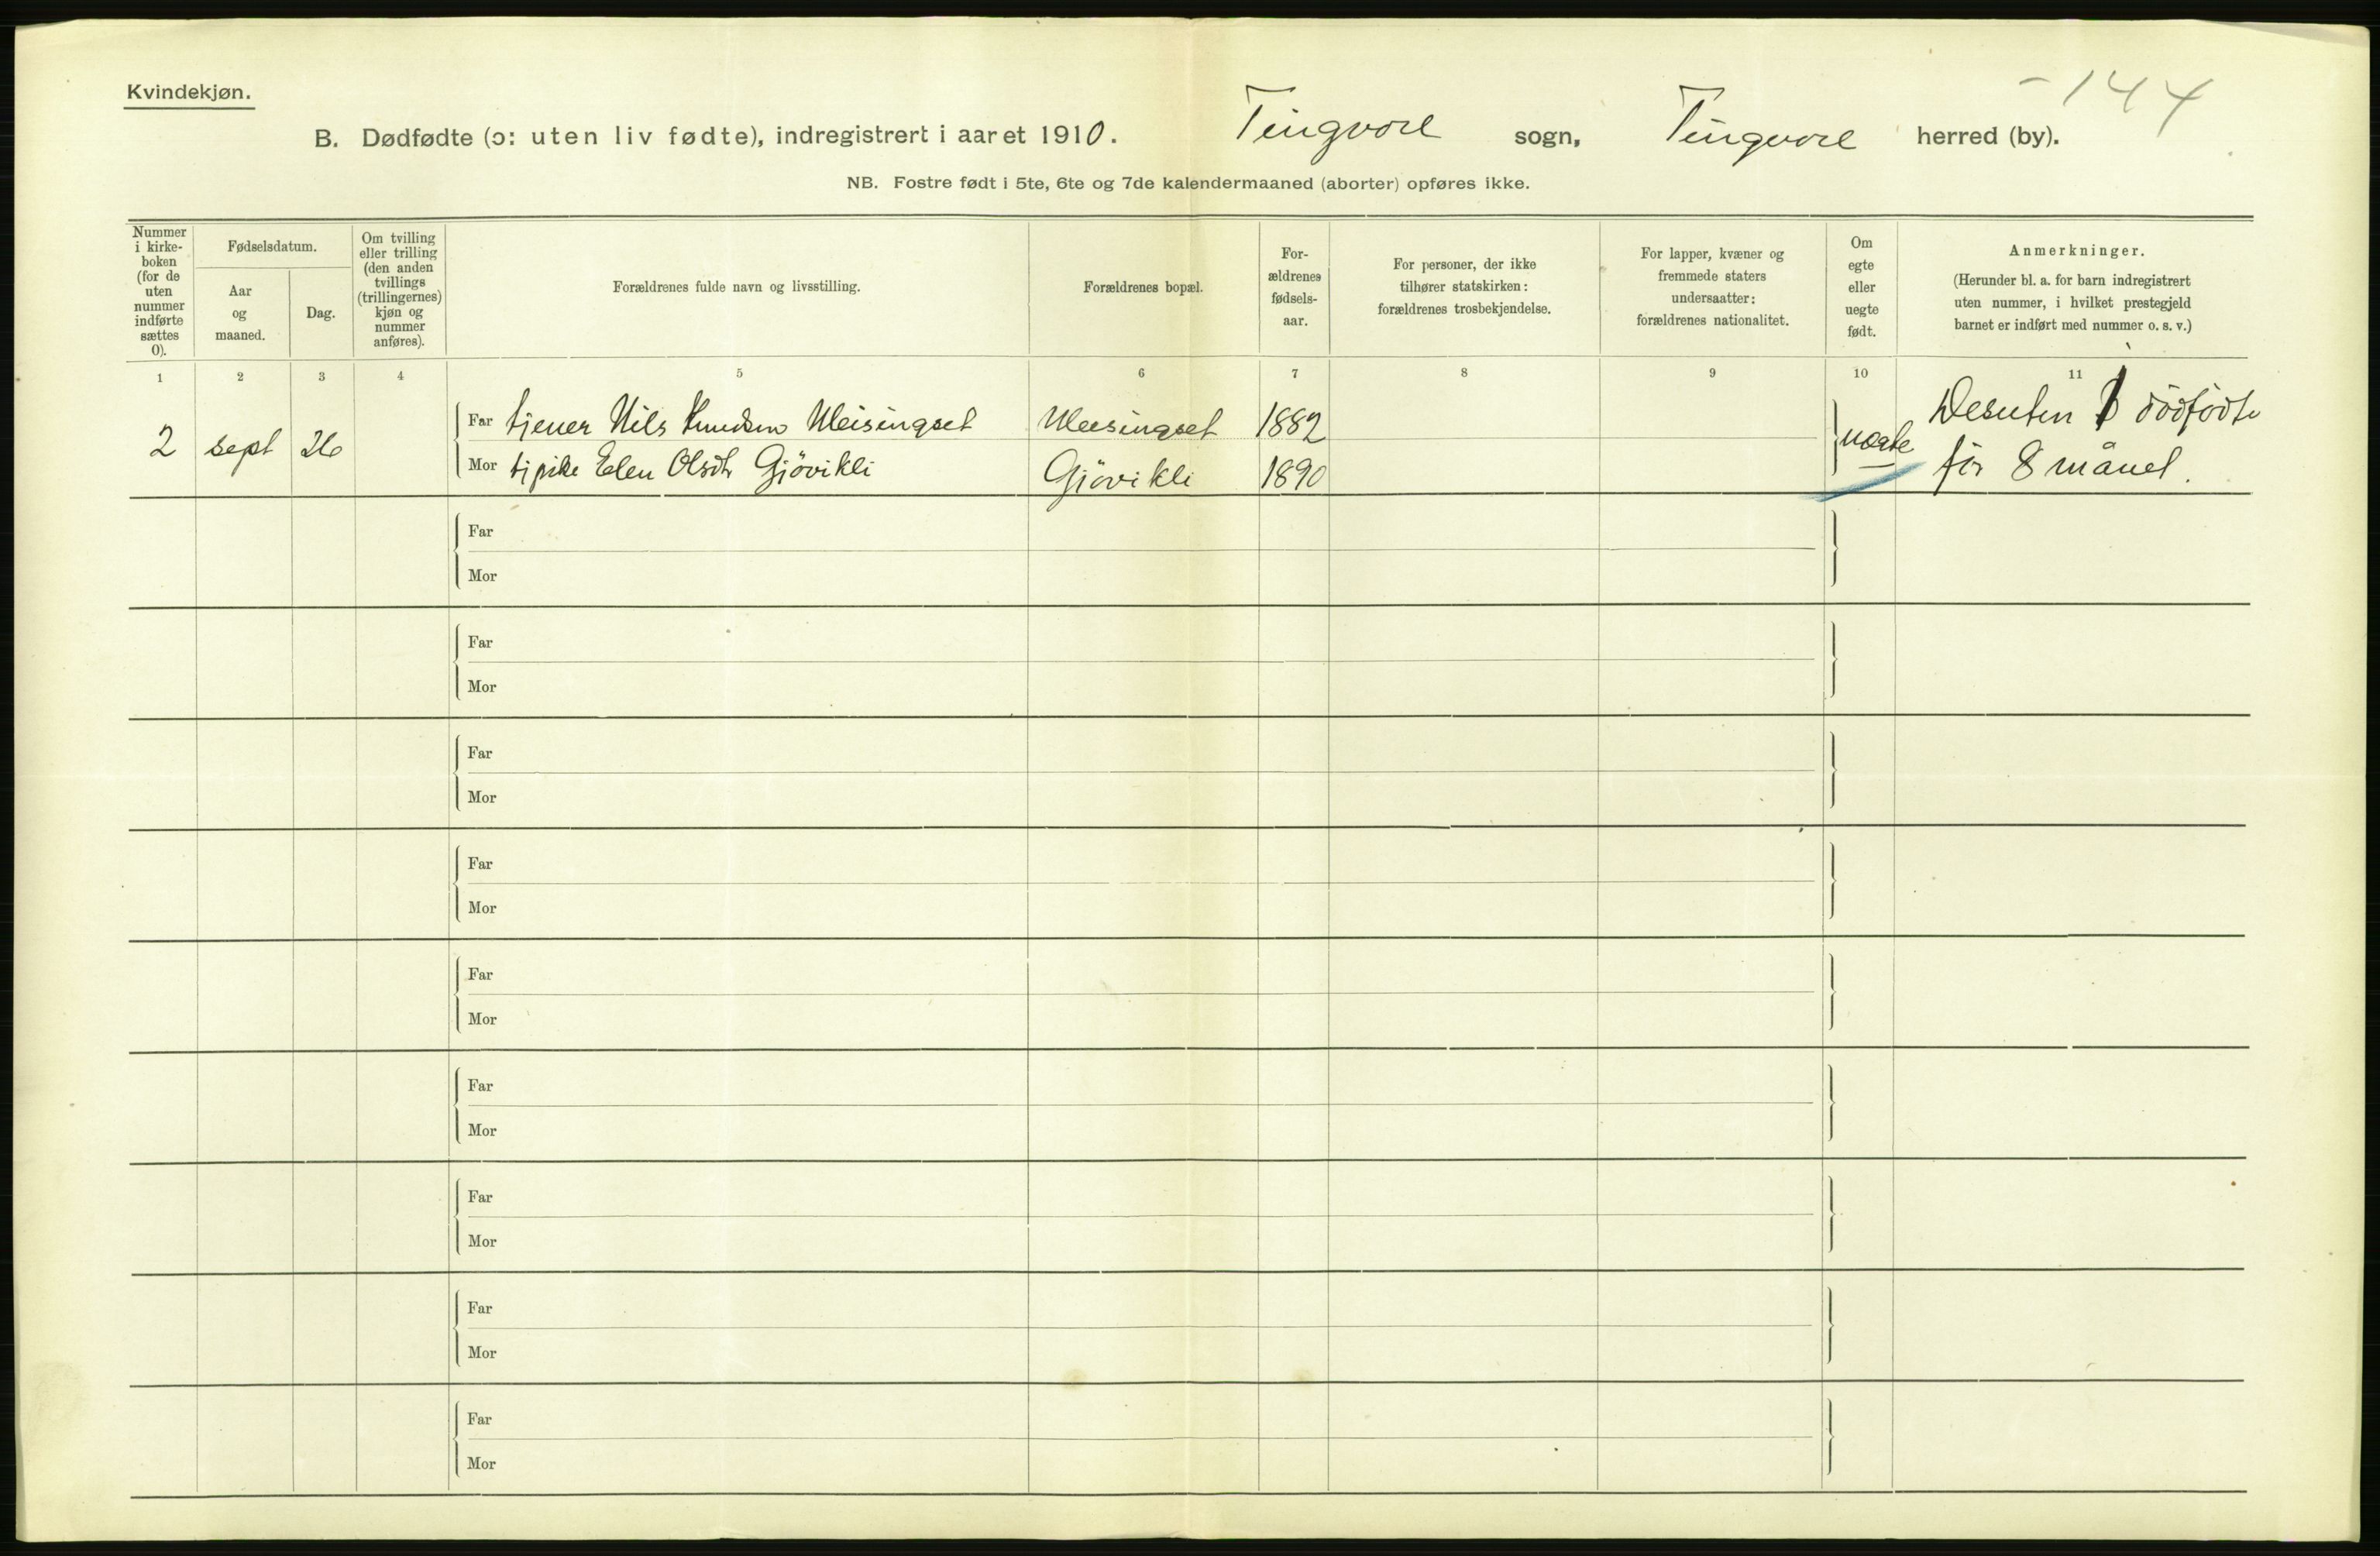 Kvindekjøn.
- 144
B. Dødfødte (ɔ: uten liv fødte), indregistrert i aaret 1910. Tingvoll sogn, Tingvoll herred (by).
NB. Fostre født i 5te, 6te og 7de kalendermaaned (aborter) opføres ikke.
Nummer
i kirke-
boken
(for de
uten
nummer
indførte
sættes
0).
Fødselsdatum.
Aar
og
maaned.
Dag.
Om tvilling
eller trilling
(den anden
tvillings
(trillingernes)
kjøn og
nummer
anføres).
Forældrenes fulde navn og livsstilling.
Forældrenes bopæl.
For-
ældrenes
fødsels-
aar.
For personer, der ikke
tilhører statskirken:
forældrenes trosbekjendelse.
For lapper, kvæner og
fremmede staters
undersaatter:
forældrenes nationalitet.
Om
egte
eller
uegte
født.
Anmerkninger.
(Herunder bl. a. for barn indregistrert
uten nummer, i hvilket prestegjeld
barnet er indført med nummer o. s. v.)
1 2 3 4 5 6 7 8 9 10 11
2 sept 26
Far tjener Nils Knudsen Meisingset Meisingset 1882
Mor tjpike Elen Olsdtr Gjövikli Gjövikli 1890
uegte
Desuten 1 dödfödte
för 8 månel.
Far
Mor
Far
Mor
Far
Mor
Far
Mor
Far
Mor
Far
Mor
Far
Mor
Far
Mor
Far
Mor